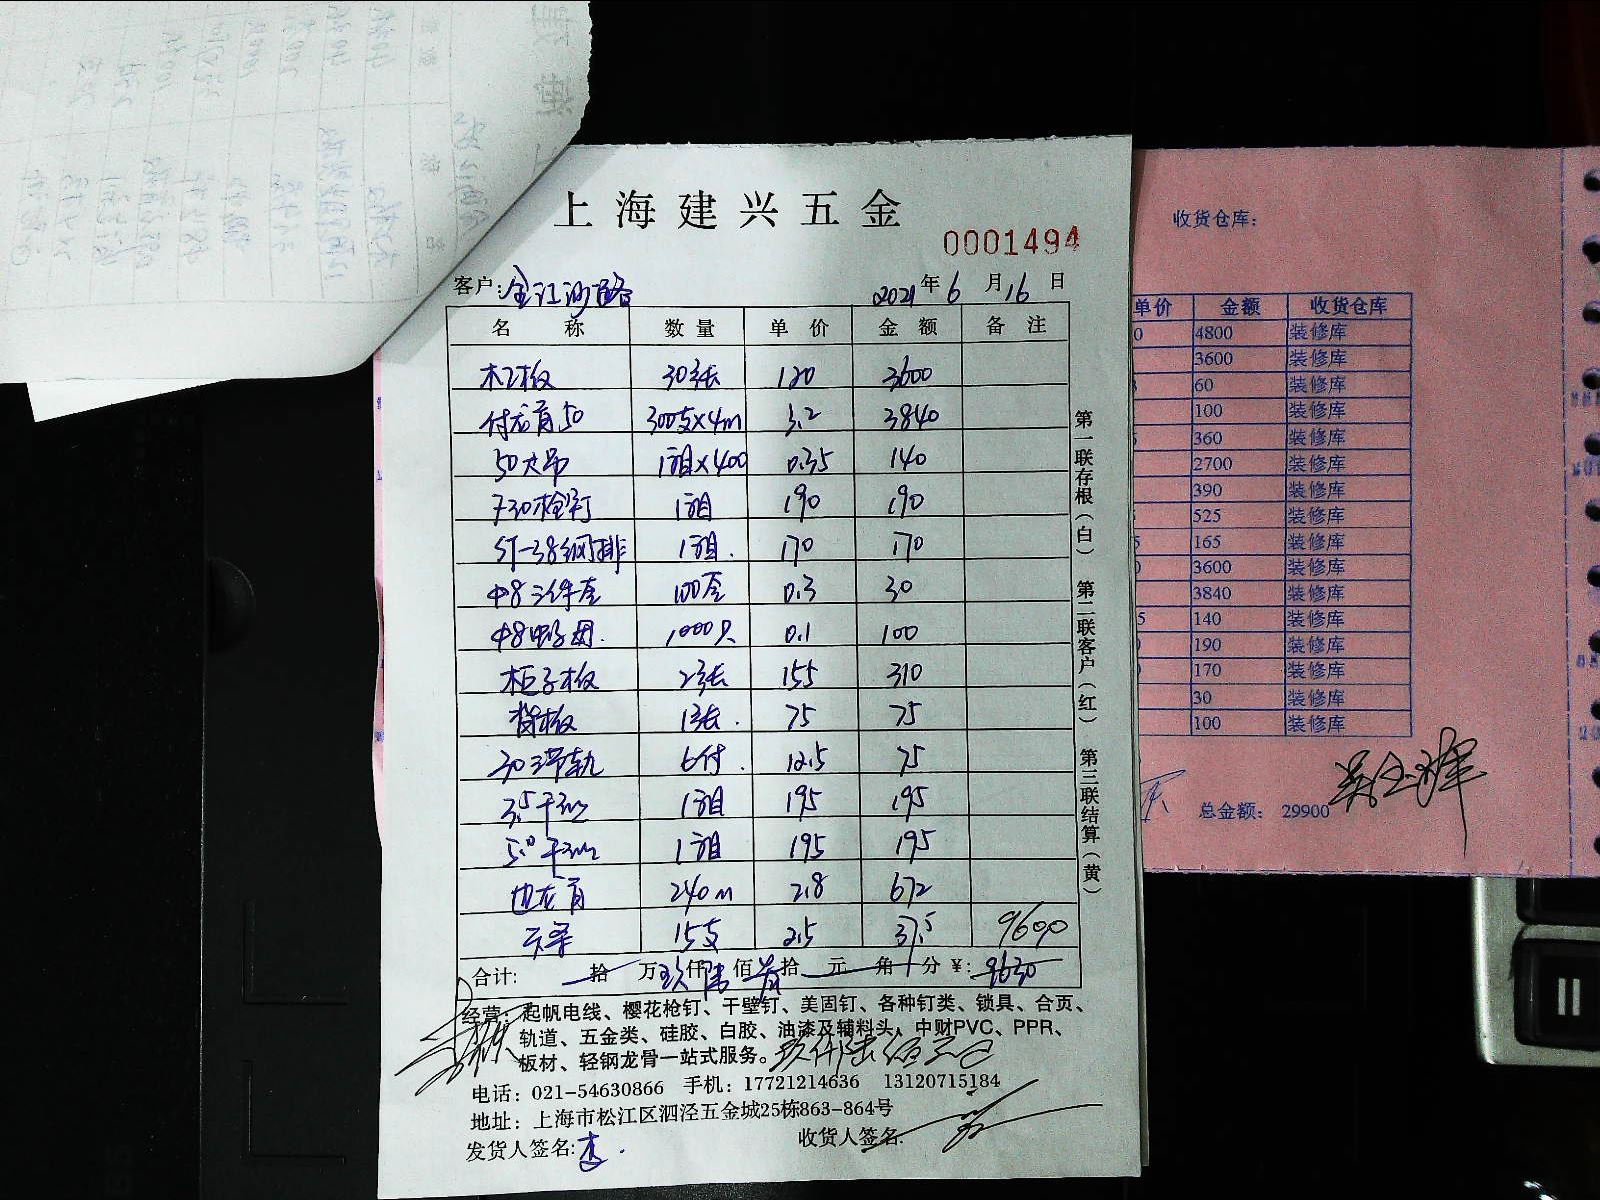 上海建兴五金
0001494
客户:金江沙路 2021年6月16日
名称 数量 单价 金额 备注
木工板 30张 120 3600
付龙骨50 300支×4m 3.2 3840
50大吊 1箱×400 0.35 140
F30枪钉 1箱 190 190
ST-38钢排 1箱. 170 170
Φ8三件套 100套 0.3 30
Φ8 1000只 0.1 100
柜子板 2张 155 310
背板 1张. 75 75
30三节轨 6付. 12.5 75
3.5干 1箱 195 195
5.0干 1箱 195 195
边龙骨 240m 2.8 672
15支 2.5 37.5 9600
合计: 拾 万玖仟陆佰 拾 元 角 分 ¥:9630
经营:起帆电线、樱花枪钉、干壁钉、美固钉、各种钉类、锁具、合页、
轨道、五金类、硅胶、白胶、油漆及辅料头，中财PVC、PPR、
板材、轻钢龙骨一站式服务。玖仟陆佰元正
电话：021-54630866 手机：17721214636 13120715184
地址：上海市松江区泗泾五金城25栋863-864号
发货人签名:李. 收货人签名:
第一联存根(白) 第二联客户(红) 第三联结算(黄)
收货仓库：
单价 金额 收货仓库
0 4800 装修库
3600 装修库
60 装修库
100 装修库
360 装修库
2700 装修库
390 装修库
525 装修库
5 165 装修库
0 3600 装修库
3840 装修库
5 140 装修库
190 装修库
170 装修库
30 装修库
100 装修库
总金额：29900